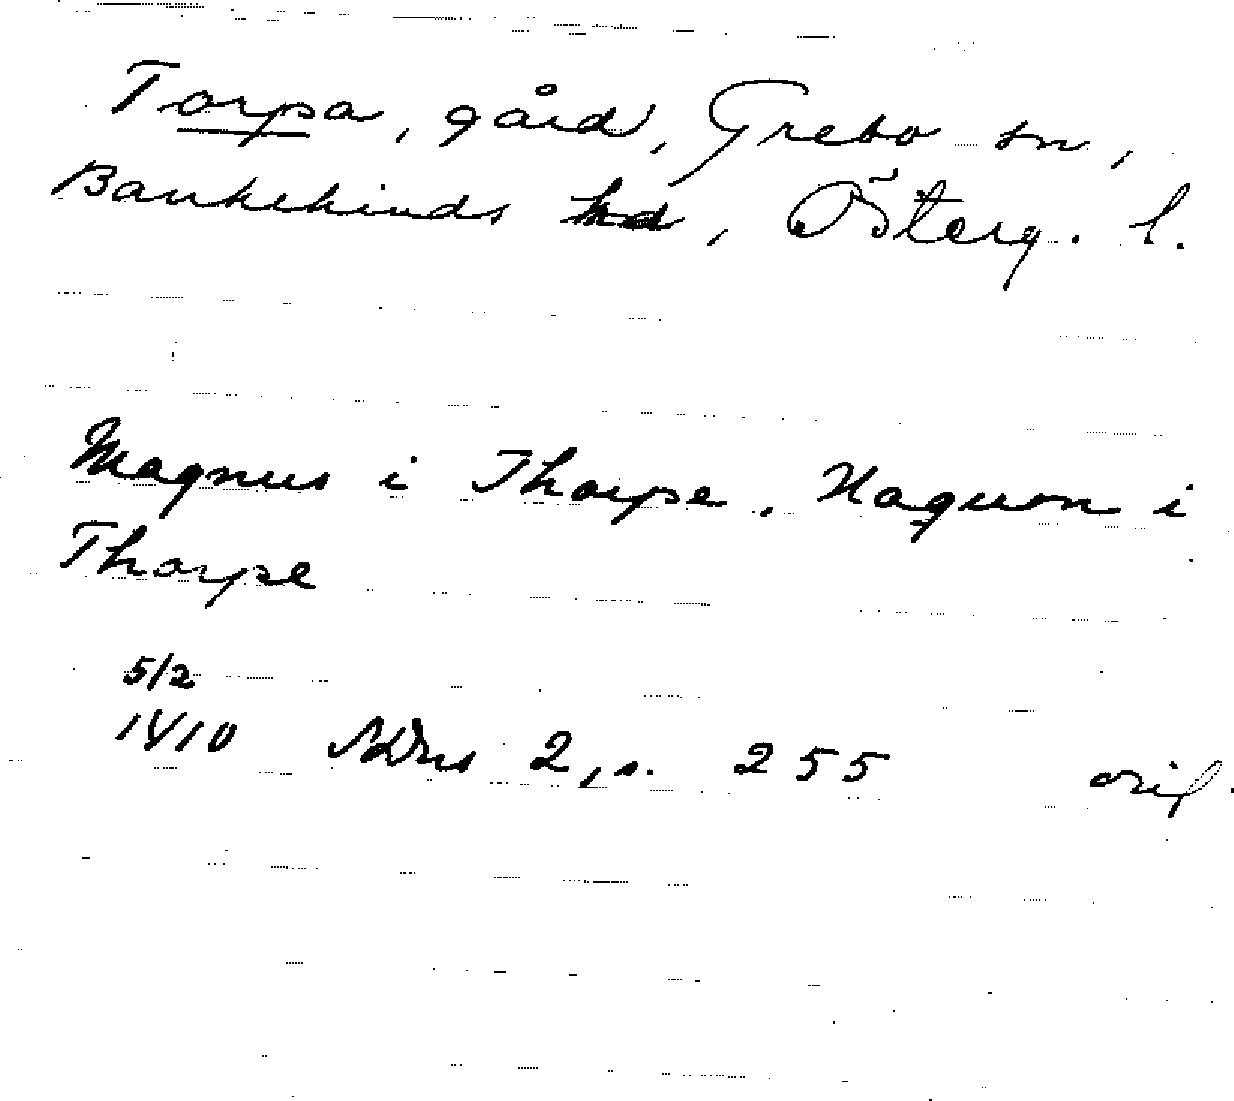 Torpa, gård, Grebo sn,
Bankekinds hd, Österg. l.
Magnus i Thorpe, Haquon i
Thorpe
5/2
1410 SDns 2, s. 255 orig.